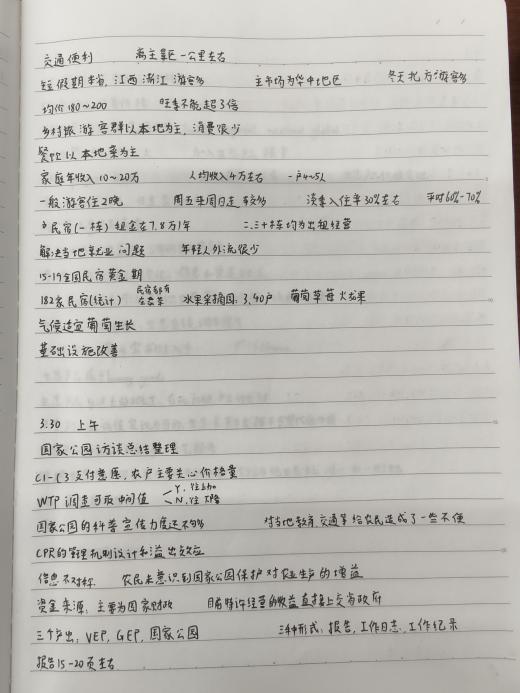 交通便利 离主景区一公里左右
短假期本省,江西浙江游客多 主市场为华中地区 冬天北方游客多
均价180~200 旺季不能超了倍
乡村旅游客群以本地为主,消费很少
餐饮以本地菜为主
家庭年收入10~20万 人均收入4万左右 一户4~5人
一般游客住2晚 周五来周日走较多 淡季入住率30%左右 平时60%-70%
民宿(一栋)租金在7.8万1年 二.三十栋均为出租经营
解决当地就业问题 年轻人外流很少
15-19全国民宿黄金期
182家民宿(统计) 民宿都有 水果采摘园:3.40户 葡萄草莓火龙果
气候适宜葡萄生长
基础设施改善
3.30 上午
国家公园访谈总结整理
C1-C3支付意愿,农户主要关心价格量
WTP调查可取中间值 Y, N,
国家公园的科普宣传力度还不够 对当地教育交通等给农民造成了一些不便
CPR的管理机制设计和溢出效应
信息不对称 农民未意识到国家公园保护对农业生产的增益
资金来源:主要为国家财政 目前特许经营的收益直接上交省政府
三个产出:VEP,GEP,国家公园 三种形式:报告,工作日志,工作纪录
报告15-20页左右